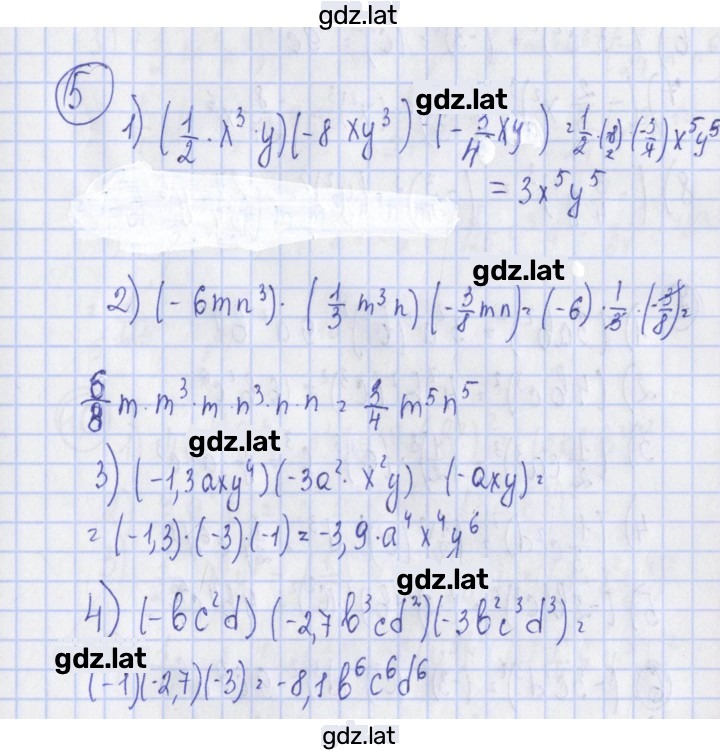 gdz.lat
5
gdz.lat
1) (1/2 · x³ · y)(-8 xy³) · (-3/4 xy) = 1/2 · (-8) · (-3/4) x⁵y⁵
= 3x⁵y⁵
gdz.lat
2) (-6mn³) · (1/3 m³n) (-3/8 mn) = (-6) · 1/3 · (-3/8) =
6/8 m · m³ · m · n³ · n · n = 3/4 m⁵n⁵
gdz.lat
3) (-1,3axy⁴)(-3a² · x²y) (-axy) =
= (-1,3) · (-3) · (-1) = -3,9 · a⁴x⁴y⁶
gdz.lat
4) (-bc²d) (-2,7b³cd²)(-3b²c³d³) =
gdz.lat
(-1)(-2,7)(-3) = -8,1b⁶c⁶d⁶
gdz.lat